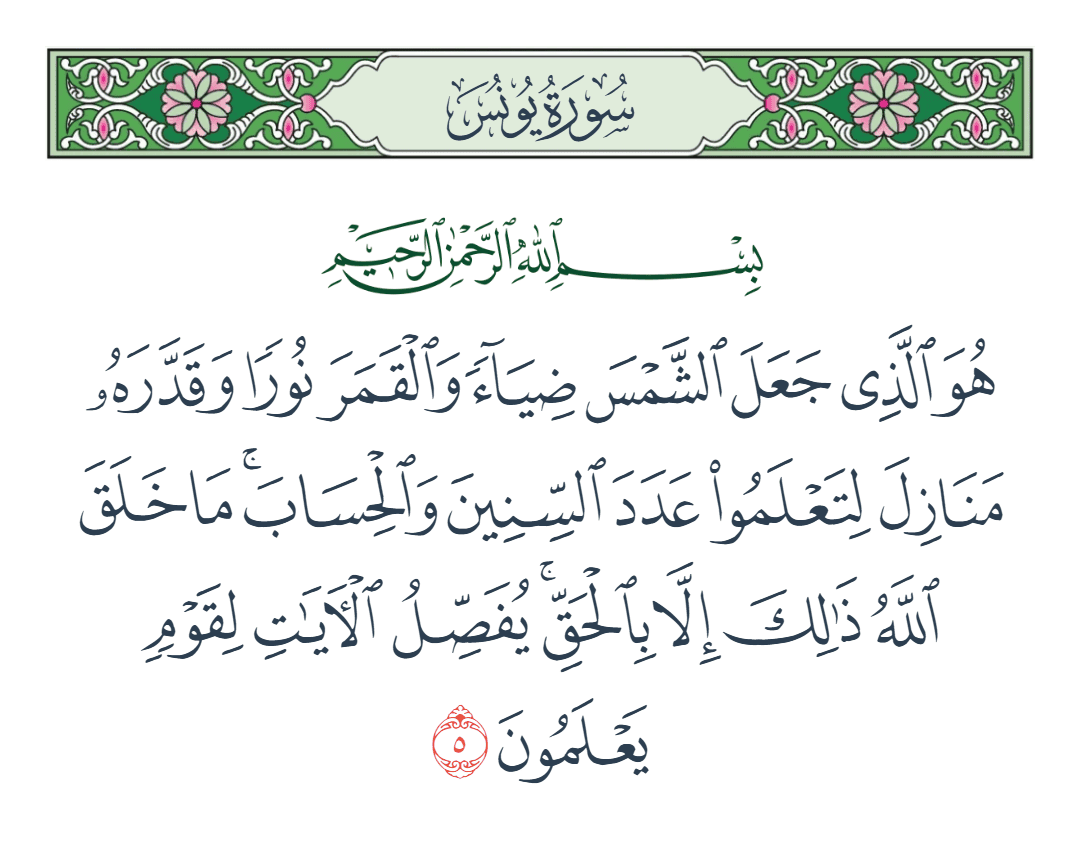 سُورَةُ يُونُسَ
بِسْمِ ٱللَّهِ ٱلرَّحْمَٰنِ ٱلرَّحِيمِ
هُوَ ٱلَّذِى جَعَلَ ٱلشَّمْسَ ضِيَآءً وَٱلْقَمَرَ نُورًا وَقَدَّرَهُۥ
مَنَازِلَ لِتَعْلَمُوا۟ عَدَدَ ٱلسِّنِينَ وَٱلْحِسَابَ ۚ مَا خَلَقَ
ٱللَّهُ ذَٰلِكَ إِلَّا بِٱلْحَقِّ ۚ يُفَصِّلُ ٱلْءَايَٰتِ لِقَوْمٍ
يَعْلَمُونَ ٥